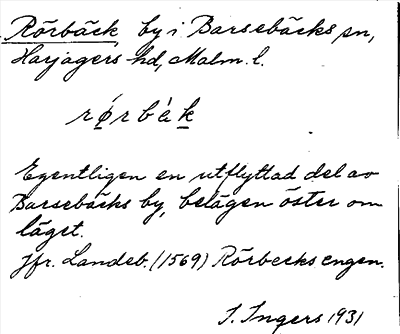 Rörbäck by i Barsebäcks sn,
Harjagers hd, Malm. l.
rǿrbàk
Egentligen en utflyttad del av
Barsebäcks by, belägen öster om
läget.
Jfr. Landeb. (1569) Rörbecks engen.
I. Ingers 1931